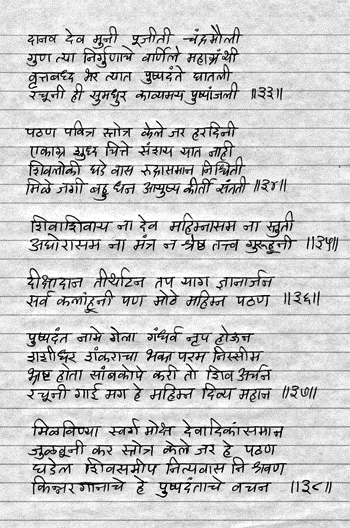 दानव देव मुनी पूजीती चंद्रमौली
गुण त्या निर्गुणाचे वर्णिले महाग्रंथी
वृत्तबध्द भर त्यात पुष्पदंते घातली
रचूनी ही सुमधुर काव्यमय पुष्पांजली ॥३३॥
पठण पवित्र स्तोत्र केले जर हरदिनी
एकाग्र शुध्द चित्ते संशय यात नाही
शिवलोकी घडे वास रूद्रासमान निश्चिती
मिळे जगी बहु धन आयुष्य कीर्ती संतती ॥३४॥
शिवाशिवाय ना देव महिम्नासम ना स्तुती
अघोरासम ना मंत्र न श्रेष्ठ तत्त्व गुरूहूनी ॥३५॥
दीक्षादान तीर्थाटन तप याग ज्ञानार्जन
सर्व कलांहूनी पण मोठे महिम्न पठण ॥३६॥
पुष्पदंत नामे गेला गंधर्व नृप होऊन
शशीधर शंकराचा भक्त परम निस्सीम
भ्रष्ट होता सांबकोपे करी तो शिव अर्चन
रचूनी गाई मग हे महिम्न दिव्य महान ॥३७॥
मिळविण्या स्वर्ग मोक्ष देवादिकांसमान
जुळवूनी कर स्तोत्र केले जर हे पठण
घडेल शिवसमीप नित्यवास नि श्रवण
किन्नरगानाचे हे पुष्पदंताचे वचन ॥३८॥